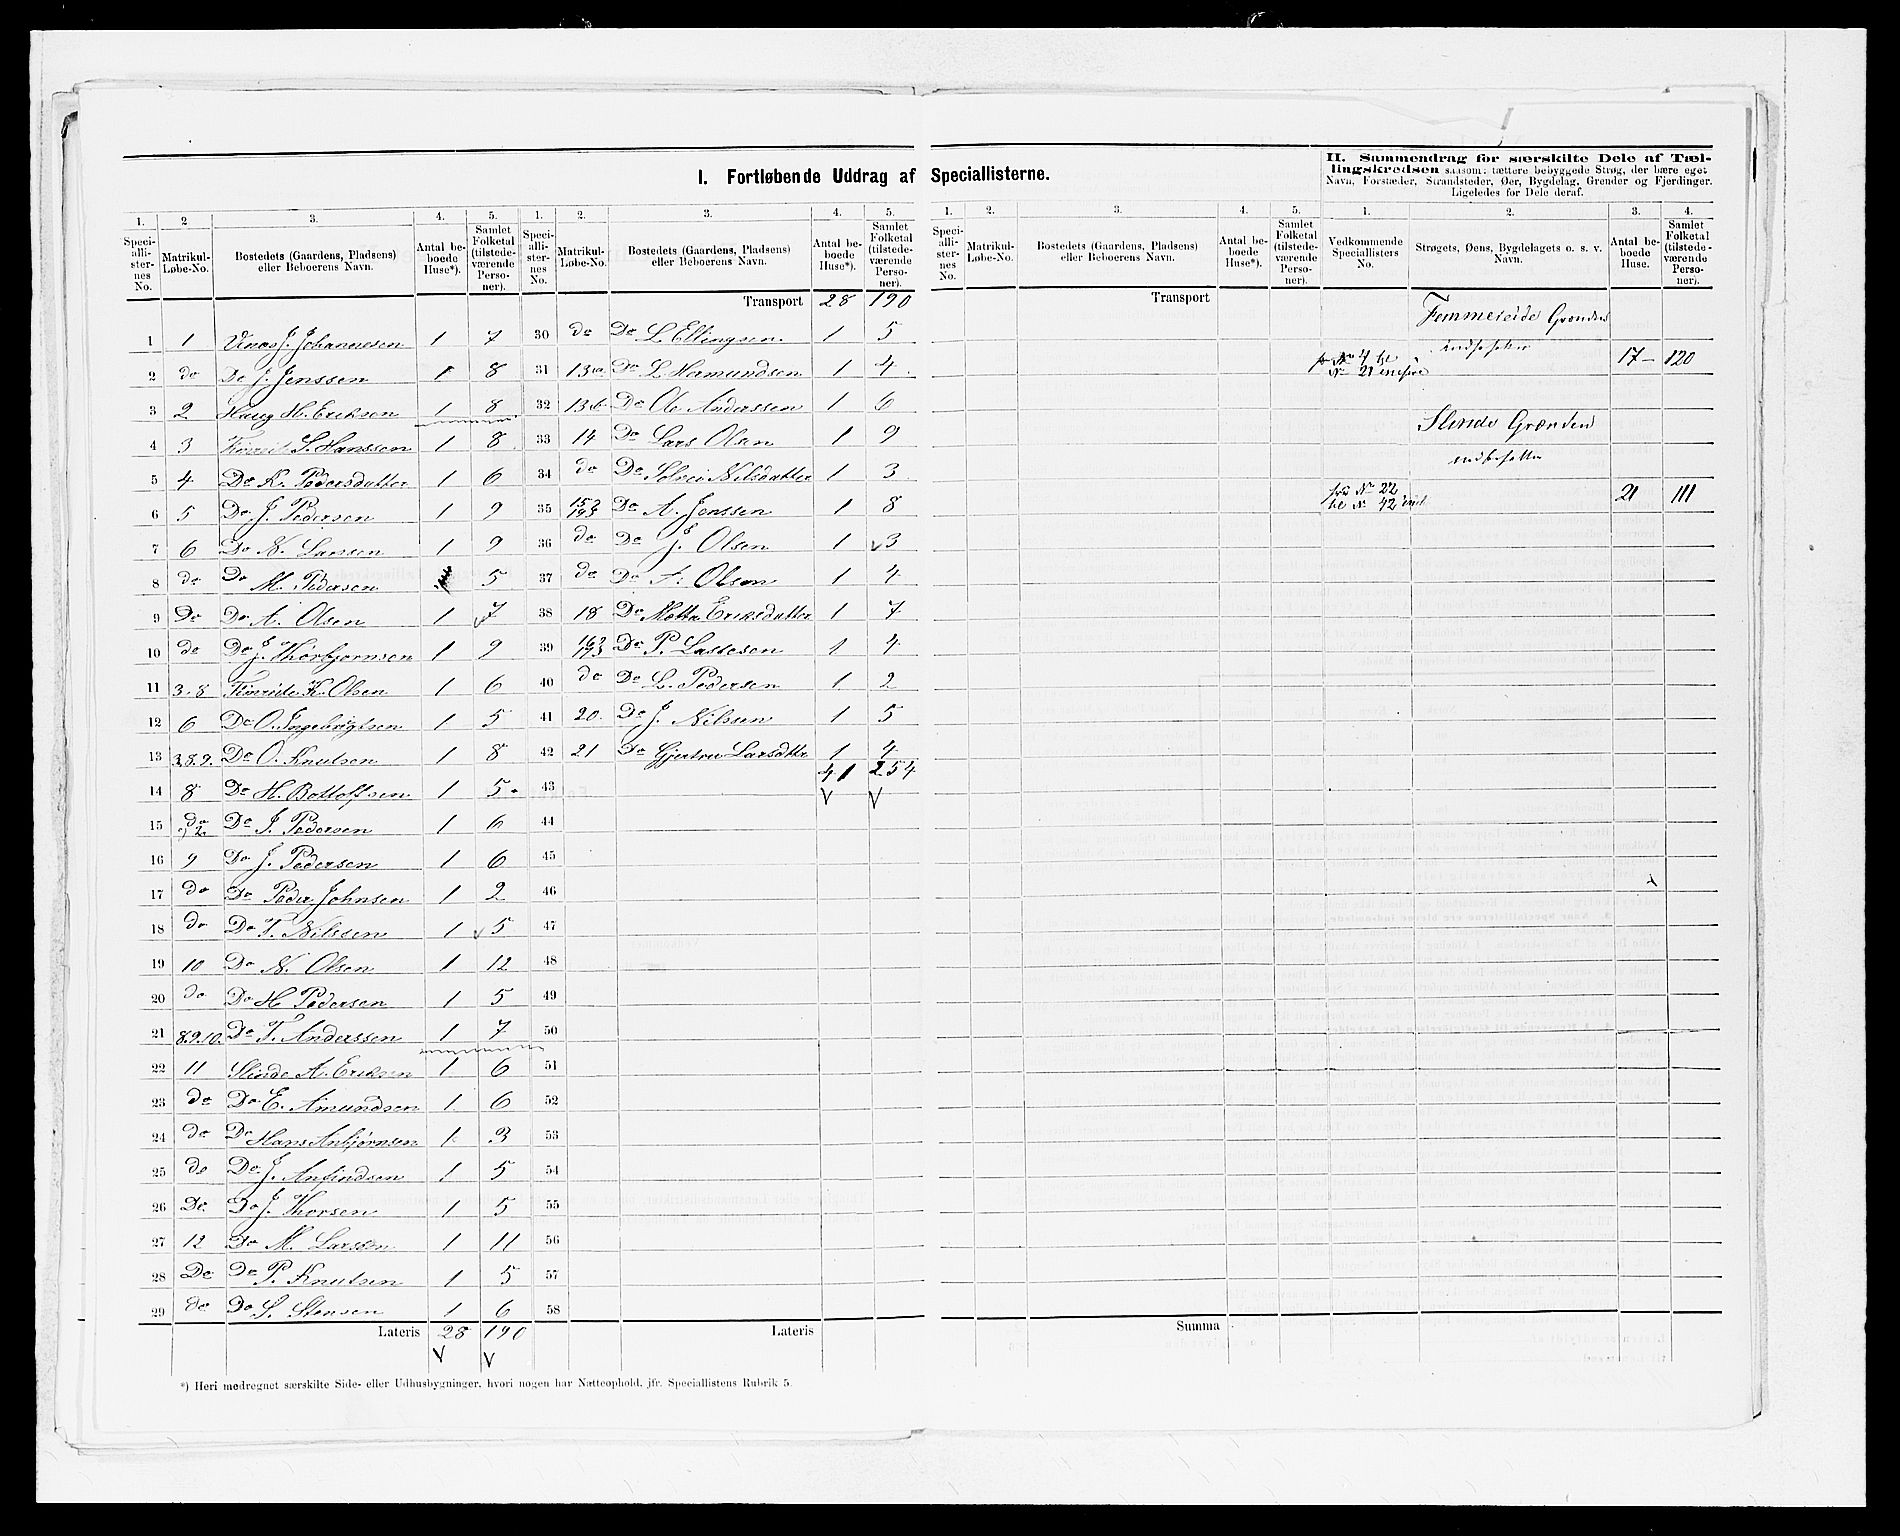 I. Fortløbende Uddrag af Speciallisterne.
II. Sammendrag for særskilte Dele af Tæl-
lingskredsen saasom: tættere bebyggede Strøg, der bære eget
Navn, Forstæder, Strandsteder, Øer, Bygdelag, Grender og Fjerdinger.
Ligeledes for Dele deraf.
1. 2 3. 4. 5. 1. 2. 3. 4. 5. 1. 2. 3. 4. 5. 1. 2. 3. 4.
Speci-alli-ster-nes No. Matrikul-Løbe-No. Bostedets (Gaardens, Pladsens) eller Beboerens Navn. Antal be-boede Huse*). Samlet Folketal (tilstede-værende Perso-ner).
Speci-alli-ster-nes No. Matrikul-Løbe-No. Bostedets (Gaardens, Pladsens) eller Beboerens Navn. Antal be-boede Huse*). Samlet Folketal (tilstede-værende Perso-ner).
Speci-alli-ster-nes No. Matrikul-Løbe-No. Bostedets (Gaardens, Pladsens) eller Beboerens Navn. Antal be-boede Huse*). Samlet Folketal (tilstede-værende Perso-ner).
Vedkommende Speciallisters No. Strøgets, Øens, Bygdelagets o. s. v. Navn. Antal be-boede Huse. Samlet Folketal (tilstede-værende Perso-ner).
1 1 J. Johannesen 1 7
2 do Do J. Jenssen 1 8
3 2 Haug H. Eriksen 1 8
4 3 S. Hanssen 1 8
5 4 Do K. Pedersdatter 1 6
6 5 Do J. Pedersen 1 9
7 6 Do N. Larsen 1 9
8 do Do M. Pedersen 5
9 Do Do A. Olsen 1 7
10 do Do J. Thorbjornsen 1 9
11 3.8 K. Olsen 1 6
12 6 Do O. Ingebrigtsen 1 5
13 3.8.9. Do O. Knutsen 1 8
14 8 Do H. Bottolfsen 1 5
15 do 2 Do J. Pedersen 1 6
16 9 Do J. Pedersen 1 6
17 do Do Peder Johnsen 1 2
18 do Do T. Nilssen 1 5
19 10 Do N. Olsen 1 12
20 do Do H Pedersen 1 5
21 8.9.10. Do T. Anderssen 1 7
22 11 Slinde A. Eriksen 1 6
23 do Do E. Amundsen 1 6
24 do Do Hans Anbjørnsen 1 3
25 do Do J. Anfindsen 1 5
26 Do Do J. Thorsen 1 5
27 12 Do M. Larssen 1 11
28 Do Do P. Knutsen 1 5
29 do Do S. Stensen 1 6
Lateris 28 190
Transport 28 190
30 do Do L Ellingsen 1 5
31 13a Do L Hermundsen 1 4
32 13b Do Ole Anderssen 1 6
33 14 Do Lars Olsen 1 9
34 do Do Nilsdatter 1 3
35 Do A. Jenssen 1 8
36 do Do J. Olsen 1 3
37 do Do A. Olsen 1 4
38 18 Do Metta Eriksdatter 1 7
39 Do P. Lassesen 1 4
40 do Do L. Pedersen 1 2
41 20. Do J. Nilssen 1 5
42 21 Do Gjertru Larsdttr 1 4
41 254
43
44
45
46
47
48
49
50
51
52
53
54
55
56
57
58
Lateris
Transport
Summa
Grænden
indbefatter
No 4 til
No 21 17 120
Slinde Grænden
indbefatter
fra No 22
til No 42 incl 21 111
*) Heri medregnet særskilte Side- eller Udhusbygninger, hvori nogen har Natteophold, jfr. Speciallistens Rubrik 5.